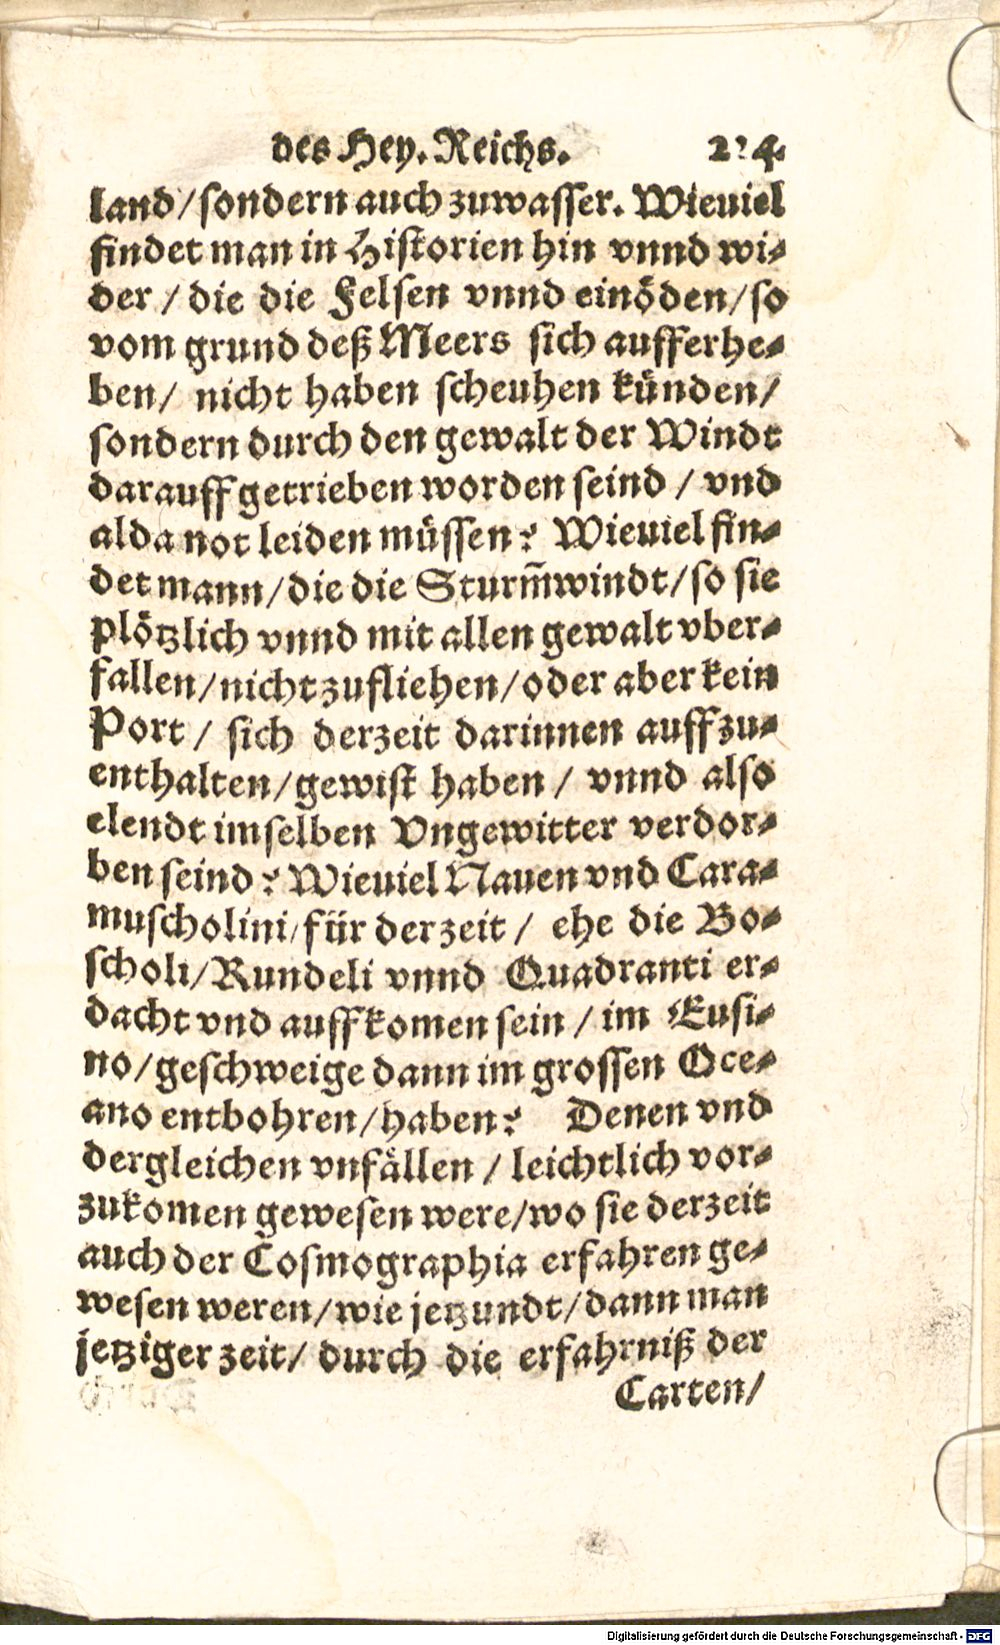 des Hey. Reichs. 224.
land/sondern auch zuwasser. Wieuiel
findet man in Historien hin vnnd wi-
der / die die Felsen vnnd einöden/so
vom grund deß Meers sich aufferhe-
ben/ nicht haben scheuhen künden/
sondern durch den gewalt der Windt
darauff getrieben worden seind / vnd
alda not leiden müssen? Wieuiel fin-
det mann/die die Sturm̃windt/so sie
plötzlich vnnd mit allen gewalt vber-
fallen/nicht zufliehen/oder aber kein
Port / sich derzeit darinnen auffzu-
enthalten/gewist haben / vnnd also
elendt imselben Vngewitter verdor-
ben seind? Wieuiel Nauen vnd Cara-
muscholini/für derzeit / ehe die Bo-
scholi/Rundeli vnnd Quadranti er-
dacht vnd auffkomen sein / im Eusi-
no/geschweige dann im grossen Oce-
ano entbohren/haben? Denen vnd
dergleichen vnfällen / leichtlich vor-
zukomen gewesen were/wo sie derzeit
auch der Cosmographia erfahren ge-
wesen weren/wie jetzundt/dann man
jetziger zeit/ durch die erfahrniß der
Carten/
Digitalisierung gefördert durch die Deutsche Forschungsgemeinschaft - DFG